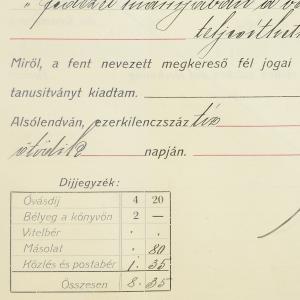 „ fedezet hiányában a
teljesíthet
Miről, a fent nevezett megkereső fél jogai
tanusítványt kiadtam.
Alsólendván, ezerkilenczszáz tíz
ötödik napján.
Díjjegyzék:
Óvásdíj 4 20
Bélyeg a könyvön 2 —
Vitelbér · ·
Másolat · 80
Közlés és postabér 1. 35
Összesen 8. 35